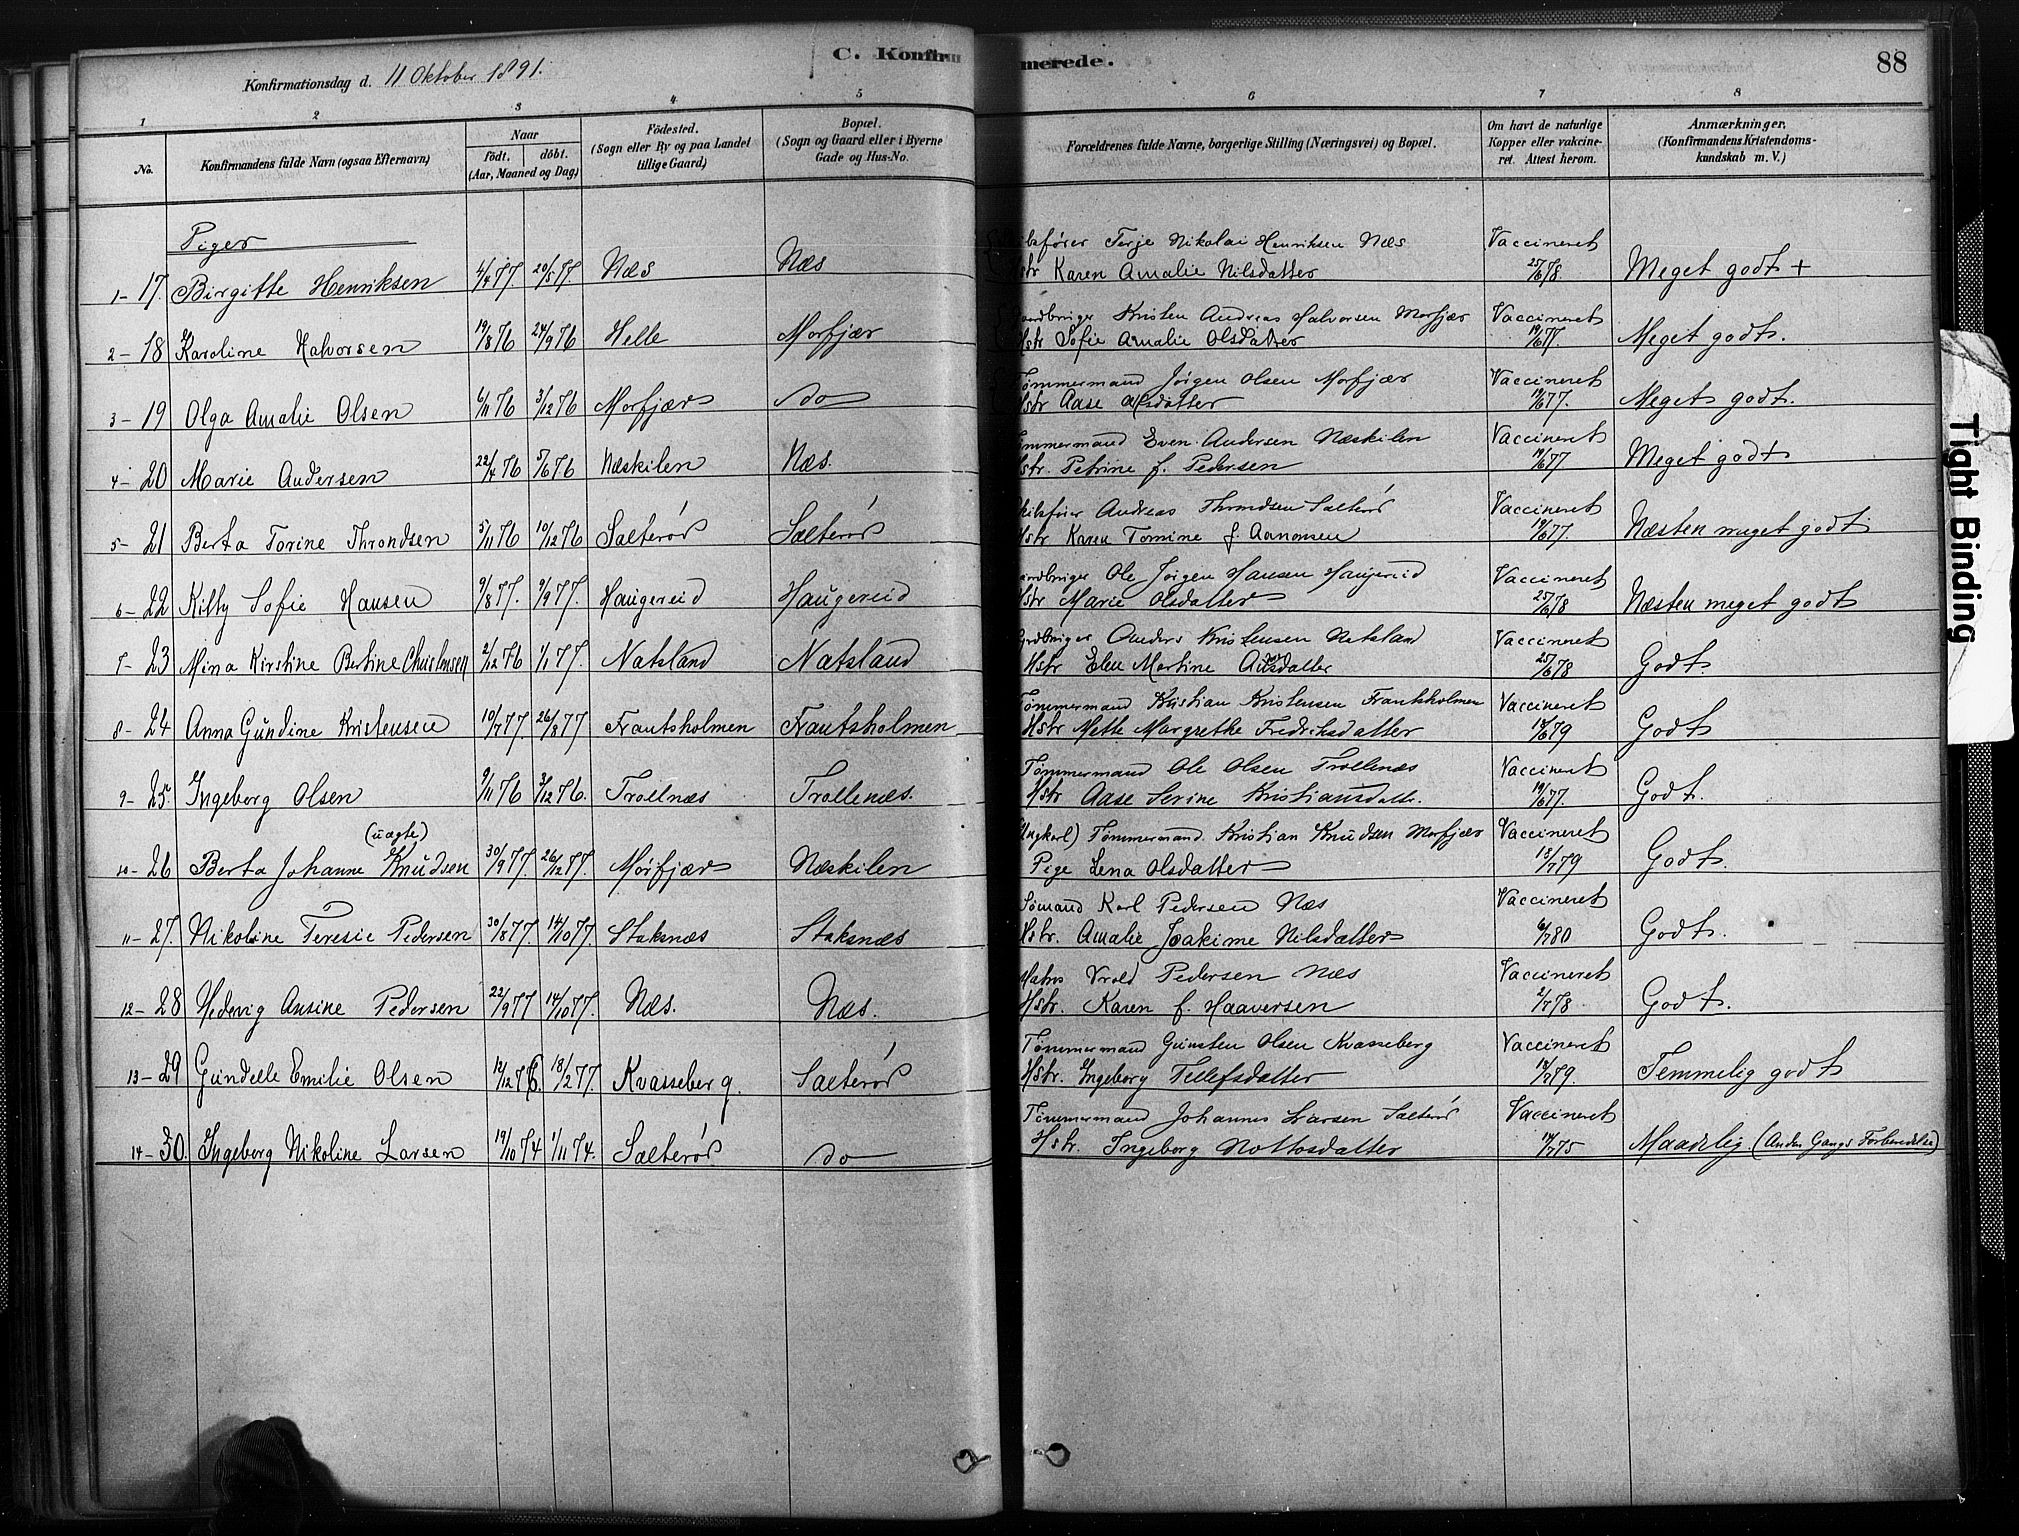 C. Konfirmerede.
88
Konfirmationsdag d. 11 Oktober 1891.
1 2 3 4 5 6 7 8
No. Konfirmandens fulde Navn (ogsaa Efternavn) Naar født. døbt. (Aar, Maaned og Dag) Fødested. (Sogn eller By og paa Landet tillige Gaard) Bopæl. (Sogn og Gaard eller i Byerne Gade og Hus-No. Forældrenes fulde Navne, borgerlige Stilling (Næringsvei) og Bopæl. Om havt de naturlige Kopper eller vakcineret. Attest herom. Anmærkninger, (Konfirmandens Kristendomskundskab m. V.)
Piger
Terje Nikolai Henriksen Næs Vaccineret
1- 17. Birgitte Henriksen 4/4 77. 20/5 77. Næs Næs Karen Amalie Nilsdatter 25/6 78 Meget godt +
Kristen Andreas Halvorsen Morfjær Vaccineret
2- 18 Karoline Halvorsen 19/8 76 24/9 76 Helle Morfjær Hstr Sofie Amalie Olsdatter 19/6 77. Meget godt.
Tømmermand Jørgen Olsen Morfjær Vaccineret
3- 19 Olga Amalie Olsen 6/11 76 3/12 76 Morfjær do Hstr Aase Olsdatter 19/6 77. Meget godt.
Tømmermand Even Andersen Næskilen Vaccineret
4- 20 Marie Andersen 22/4 76 5/6 76 Næskilen Næs. Hstr. Petrine f. Pedersen 19/6 77 Meget godt
Skibsfører Andreas Throndsen Salterød Vaccineret
5- 21 Berta Torine Throndsen 5/11 76 10/12 76 Salterød Salterød Hstr Karen Tomine f. Aanonsen 19/6 77. Næsten meget godt
Gardbruger Ole Jørgen Hansen Haugereid Vaccineret
6- 22 Kitty Sofie Hansen 9/8 77. 9/9 77. Haugereid Haugereid Hstr Marie Olsdatter 25/6 78 Næsten meget godt
Grdbruger Anders Kristensen Natsland Vaccineret
7- 23 Mina Kirstine Bertine Christensen 2/12 76 1/1 77. Natsland Natsland Hstr Elen Martine 25/6 78 Godt.
Tømmermand Kristian Kristensen Frantsholmen Vaccineret
8- 24 Anna Gundine Kristensen 10/7 77. 26/8 77 Frantsholmen Frantsholmen Hstr Mette Margrethe Fredriksdatter 18/6 79 Godt
Tømmermand Ole Olsen Trollenæs Vaccineret
9- 25. Ingeborg Olsen 9/11 76 3/12 76. Trollnæs Trollenæs. Hstr Aase Serine Kristiansdatr. 19/6 77. Godt.
(uægte) Ungkarl) Tømmermand Kristian Knudsen Morfjær Vaccineret
10- 26 Berta Johanne Knudsen 30/9 77. 26/12 77. Morfjær Næskilen Pige Lena Olsdatter 18/7 79 Godt.
Sømand Karl Pedersen Næs Vaccineret
11- 27. Nikoline Teresie Pedersen 30/8 77. 14/10 77. Staksnæs Staksnæs Hstr. Amalie Joakime Nilsdatter 6/7 80 Godt.
Matros Pedersen Næs Vaccineret
12- 28 Hedevig Ansine Pedersen 22/9 77 14/10 77. Næs. Næs. Hstr. Karen f. Haaversen 2/7 78 Godt.
Tømmermand Gunsten Olsen Kvasseberg Vaccineret
13- 29 Gundelle Emilie Olsen 12/12 76. 18/2 77. Kvasseberg. Salterød Hstr. Ingeborg Tellefsdatter 18/7 79. Temmelig godt
Tømmermand Johannes Larsen Salterød Vaccineret
14- 30. Ingeborg Nikoline Larsen 19/10 74 1/11 74. Salterød do Hstr. Ingeborg Nottosdatter 14/7 75 Maadelig. (Anden Gangs Forberedelse)
Tight Binding